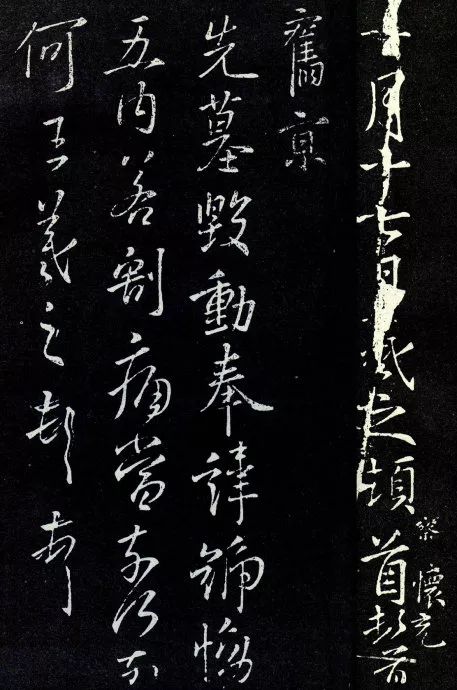 月十七日羲之頓首頓首
察
懷充
舊京
先墓毀動奉諱號慟
五內若割痛當奈何奈
何王羲之頓首